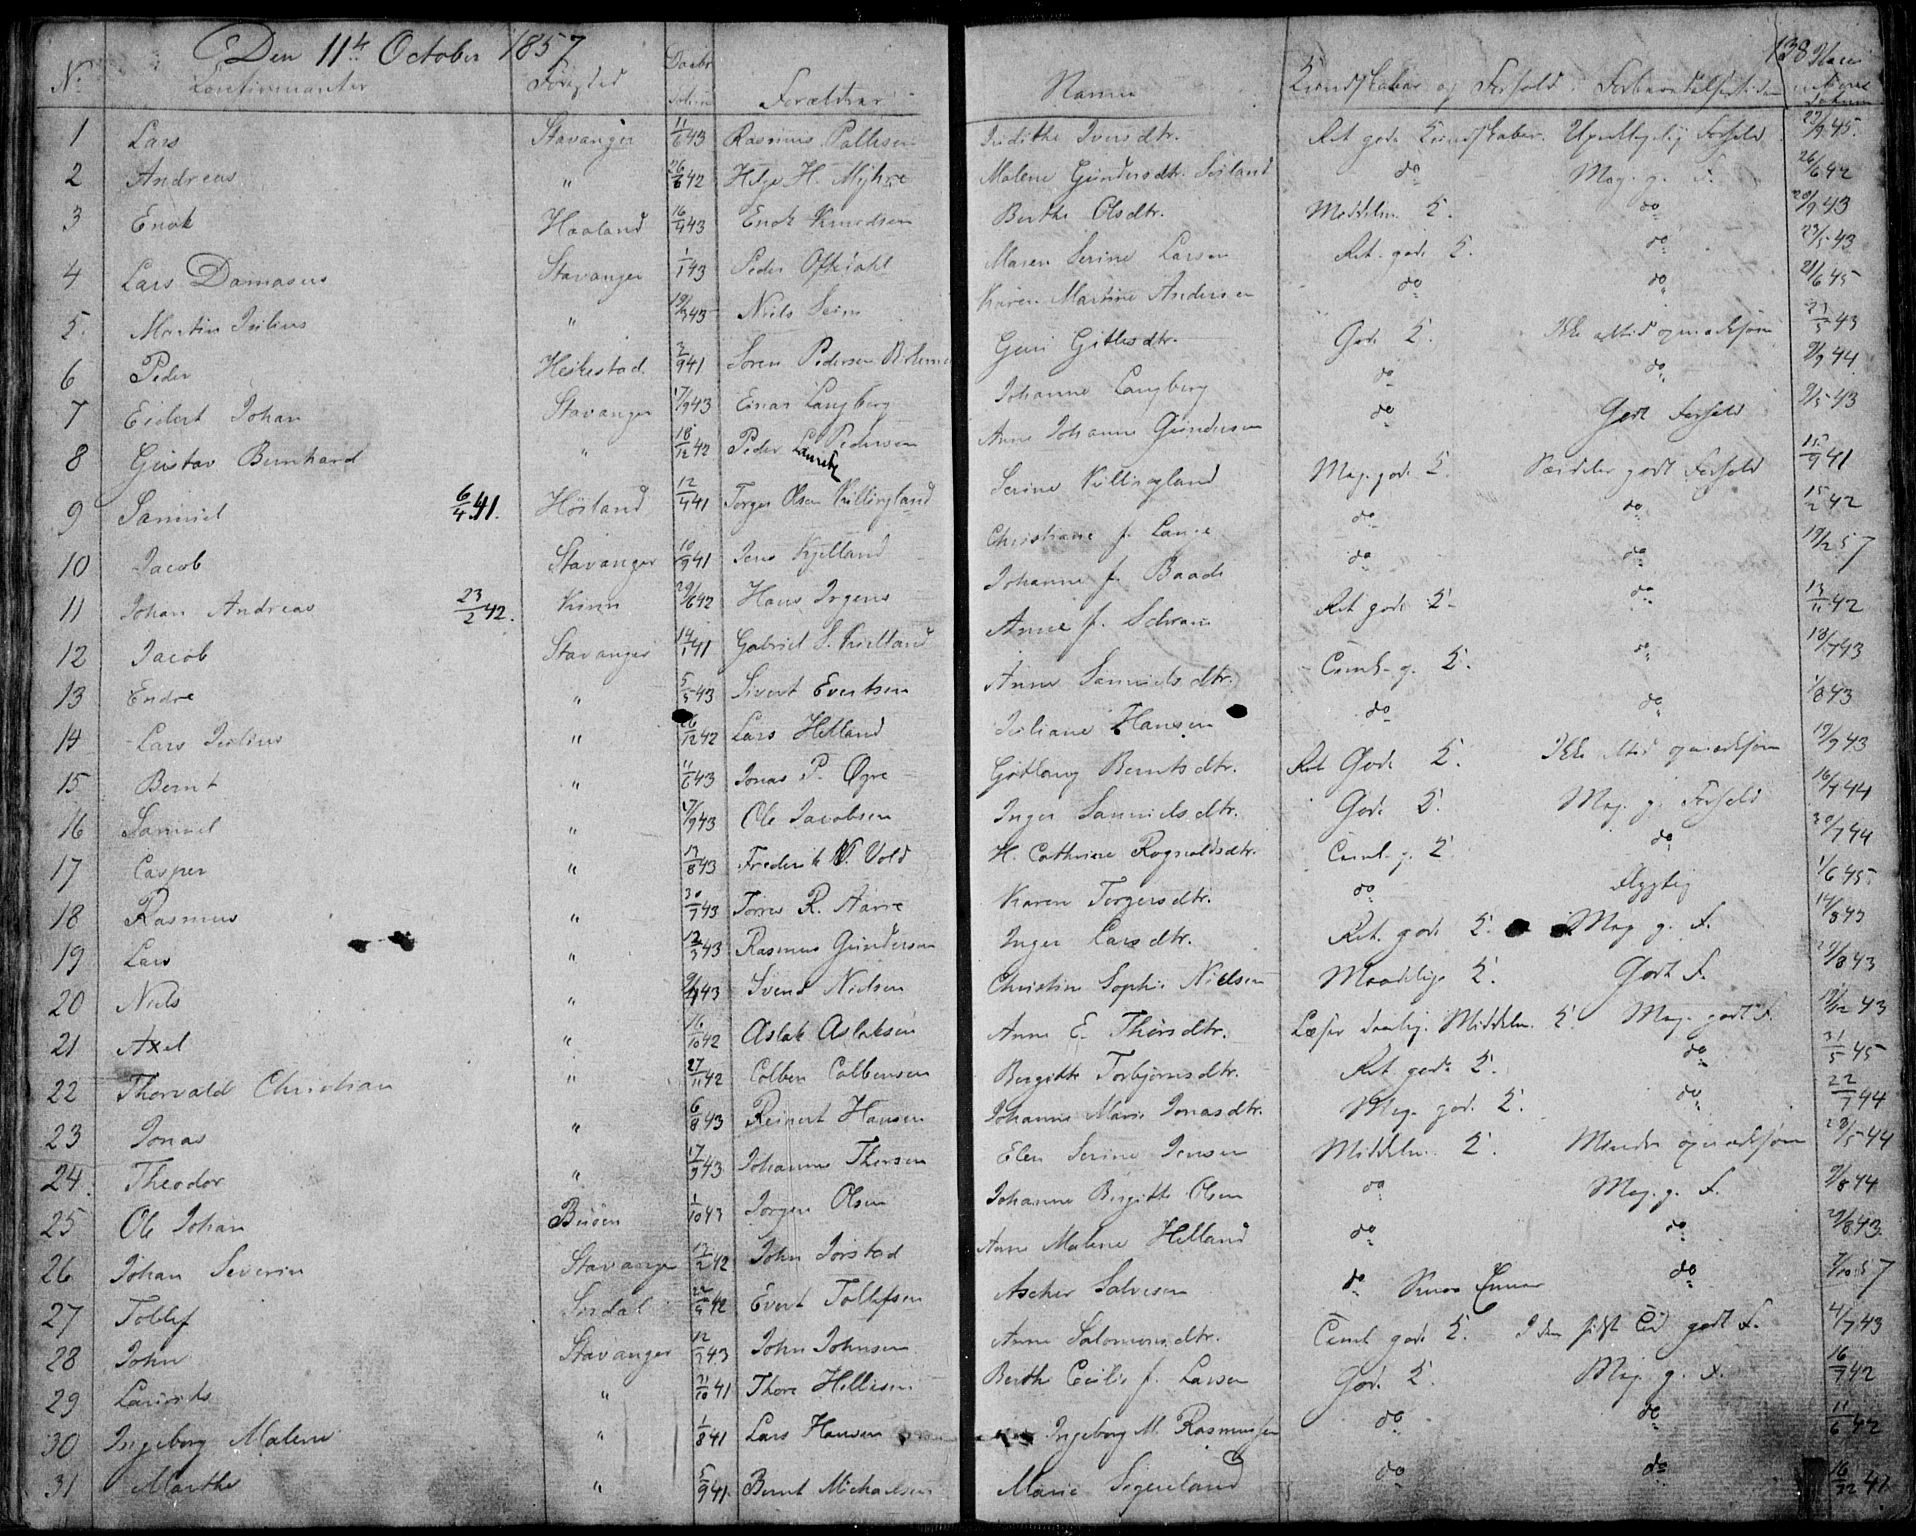 Den 11te October 1857
138
No Confirmanter Fødested Forældrar Navne Kundskaber og Forhold
1 Lars Stavanger 11/6 43 Rasmus Pallesen Judithe Iversdtr. Ret gode Kundskaber. Forhold 23/9 45.
2 Andreas " 26/6 42 Helge H. Myhre Malene Gundersdtr. do Meg. g. F. 26/6 42
3 Enok Haaland 16/4 43 Enok Knudsen Berthe Olsdtr. Middelm. K. do 20/9 43
4 Lars Damasus Stavanger 1/1 43 Peder Oftedahl Maren Serine Larsen Ret gode K. do 23/5 43
5. Martin Julius " 19/3 43 Niels Seim Karen Martine Andersen do do 21/6 45
6 Peder Heskestad 3/9 41 Søren Pedersen Guri Gitlesdtr. Gode K. Ikke altid opmærksom 23/5 43
7 Eidert Johan Stavanger 17/9 43 Einar Langberg Johanne Langberg do do 9/9 44
8 Gustav Bernhard " 18/12 42 Peder L. Pedersen Anne Johanne Gundersen do Godt Forhold 9/5 43
9 Samuel 6/4 41. Høiland 12/4 41 Torger Olsen Killingland Serine Killingland Meg. gode K. Særdeles godt Forhold 15/9 41
10 Jacob Stavanger 10/9 41 Jens Kjelland Christiane f. Lange do do 15/2 42
11 Johan Andreas 23/2 42. Kinn 29/6 42 Hans Irgens Johanne f. Baade do do 19/2 57
12 Jacob Stavanger 14/1 41 Gabriel S. Kielland Anne f. Ret gode K. do 13/11 42
13 Endre " 5/5 43 Sivert Evertsen Anne Samuelsdtr. Teml. g. K. do 18/7 43
14 Lars Julius " 16/12 42 Lars Helland Juliane Hansen do do 1/8 43
15 Bernt " 11/6 43 Jonas P. Øgre Gitlaug Berntsdtr. Ret Gode K. Ikke altid opmærksom 19/9 43
16 Samuel " 17/9 43 Ole Jacobsen Inger Samuelsdtr. Gode K. Meg. g. Forhold 16/7 44
17 Casper " 13/8 43 Frederik V. Vold H. Cathrine Rognaldsdtr. Teml. g. K. do 30/7 44
18 Rasmus " 30/7 43 Tørres R. Aarre Karen Torgersdtr. do flygtig 1/6 45.
19 Lars " 12/3 43 Rasmus Gundersen Inger Larsdtr. Ret. gode K. Meg g. F. 14/8 43
20 Niels " 9/4 43 Svend Nielsen Christine Sophie Nielsen Maadelige K. Godt F. 29/8 43
21 Axel " 16/10 42 Aslak Aslaksen Anne E. Thorsdtr. Læser daarlig. Middelm. K. Meg. godt F. 19/12 43
22 Thorvald Christian " 27/11 42 Colben Colbensen Bergitte Torbjørnsdtr. Ret gode K. do 31/5 45
23 Jonas " 6/8 43 Reinert Hansen Johanne Marie Jonasdtr. Meg. gode K. do 22/7 44
24. Theodor " 17/9 43 Johannes Thorsen Elen Serine Jensen Middelm. K. Mindre opmærksom 28/5 44
25 Ole Johan Buøen 1/10 43 Jørgen Olsen Johanne Birgitte Olsen do Meg. g. F. 9/8 44
26 Johan Severin Stavanger 13/2 42 John Jørstad Anne Malene Helland do do 29/8 43.
27 Tollef Sirdal 22/9 42 Evert Tollefsen Ascher Salvesen do do 7/10 57
28 John Stavanger 12/3 43 John Johnsen Anne Salomonsdtr. Teml. gode K. I den sidste Tid godt F. 4/7 43
29 Laurids " 21/10 41 Thore Hellisen Berthe Cecilie f. Larsen Gode K. Meg. g. F. 16/7 42
30 Ingeborg Malene " 1/8 41 Lars Hansen Ingeborg M. Rasmussen do do 11/6 42
31 Marthe " 5/9 41. Bernt Michaelsen Marie Sogneland do do 16/12 41.